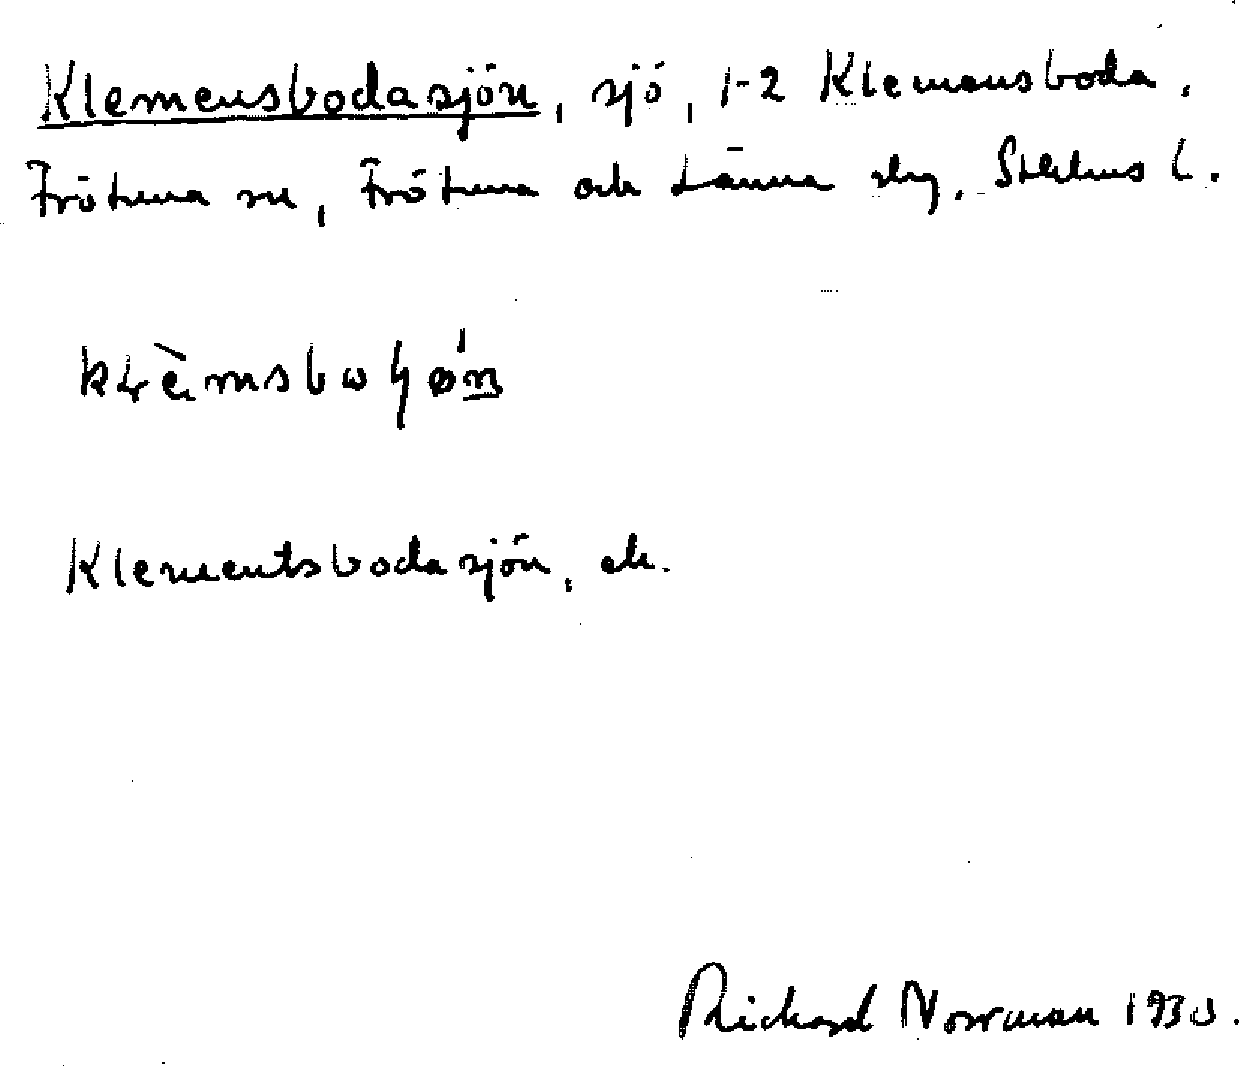 Klemensbodasjön, sjö, 1-2 Klemensboda,
Frötuna sn, Frötuna och Länna skg, Sthlms l.
Klementsbodasjön, ek.
Richard Norrman 1930.